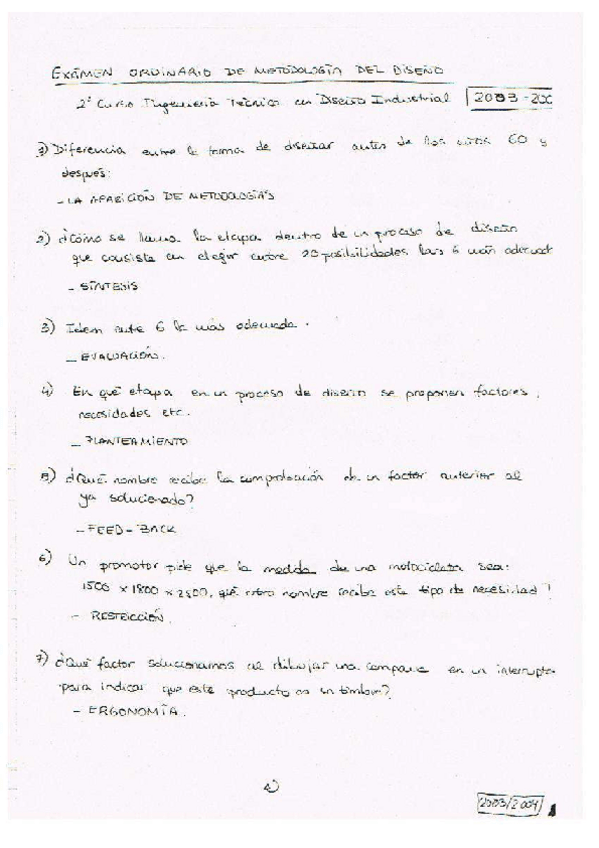 EXÁMEN ORDINARIO DE METODOLOGÍA DEL DISEÑO
2º Curso Ingeniería Técnica en Diseño Industrial 2003-200
1) Diferencia entre la forma de diseñar antes de los años 60 y
después:
- LA APARICIÓN DE METODOLOGÍAS
2) ¿Cómo se llama la etapa dentro de un proceso de diseño
que consiste en elegir entre 20 posibilidades las 6 más adecuad
- SÍNTESIS
3) Idem entre 6 la más adecuada.
- EVALUACIÓN.
4) En qué etapa en un proceso de diseño se proponen factores,
necesidades etc.
- PLANTEAMIENTO
5) ¿Qué nombre recibe la comprobación de un factor anterior al
ya solucionado?
- FEED-BACK
6) Un promotor pide que la medida de una motocicleta sea:
1500 x 1800 x 2800, qué otro nombre recibe este tipo de necesidad?
- RESTRICCIÓN.
7) ¿Qué factor solucionamos al dibujar una campana en un interrupto
para indicar que este producto es un timbre?
- ERGONOMÍA.
2003/2004